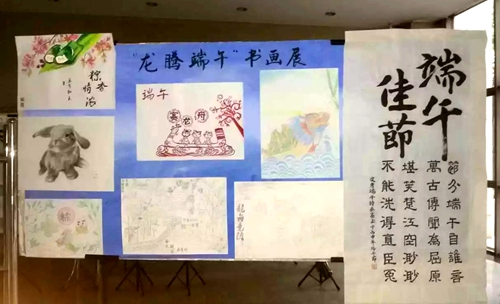 "龙腾端午"书画展
粽香
情浓
端午
赛龙舟
端午
佳節
節分端午自誰言
萬古傳聞為屈原
堪笑楚江空渺渺
不能洗得直臣冤